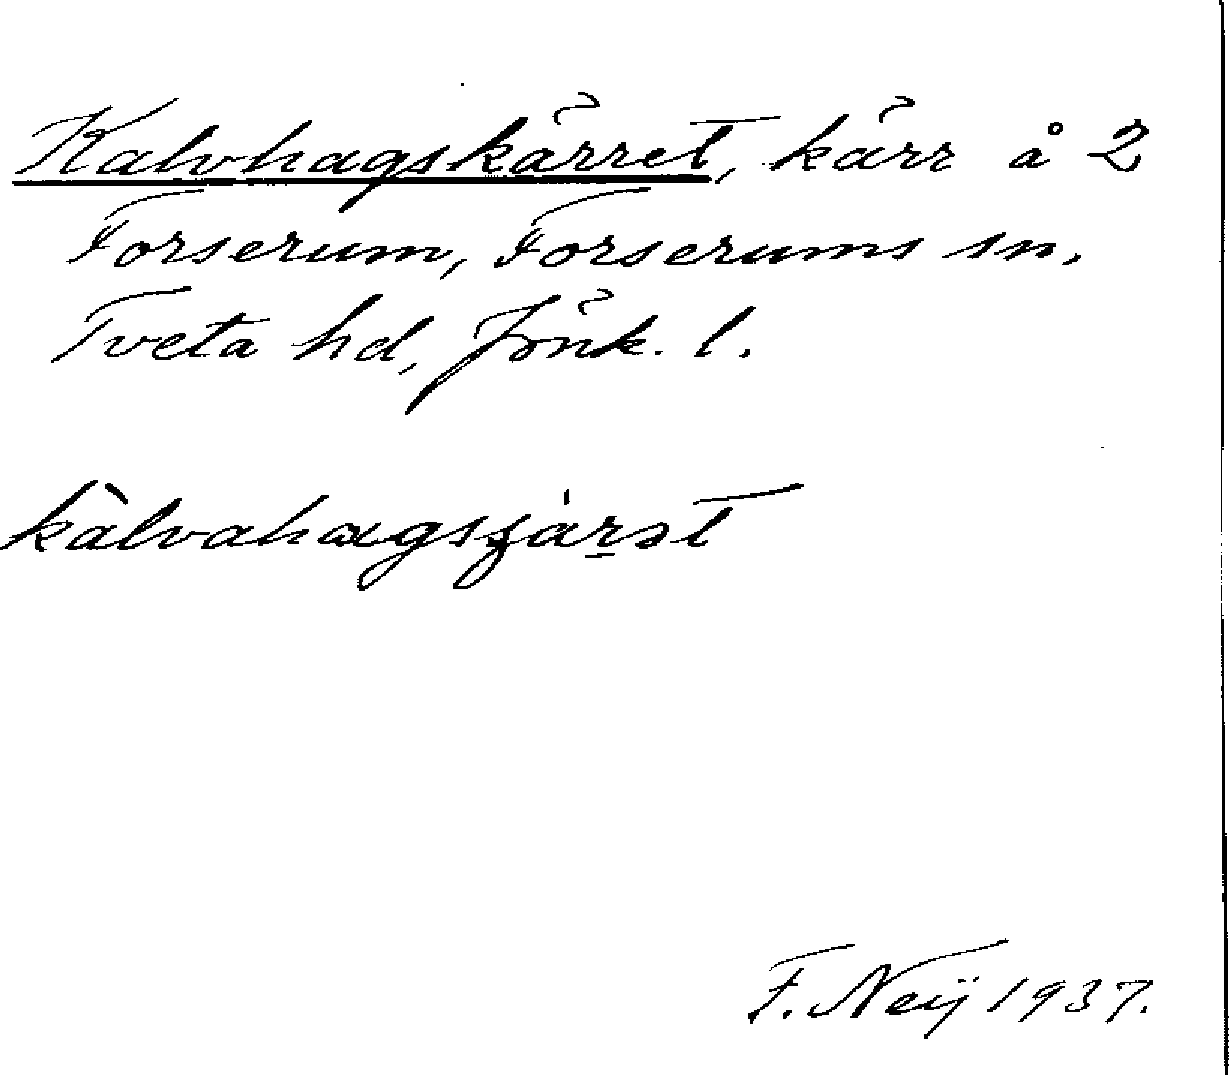 Kalvhagskärret, kärr å 2
Forserum, Forserums sn,
Tveta hd, Jönk. l.
F. Neij 1937.